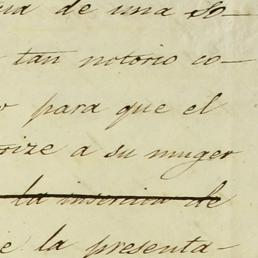 ua de una So-
tan notorio co-
para que el
rize a su muger
la insercia de
e la presenta-